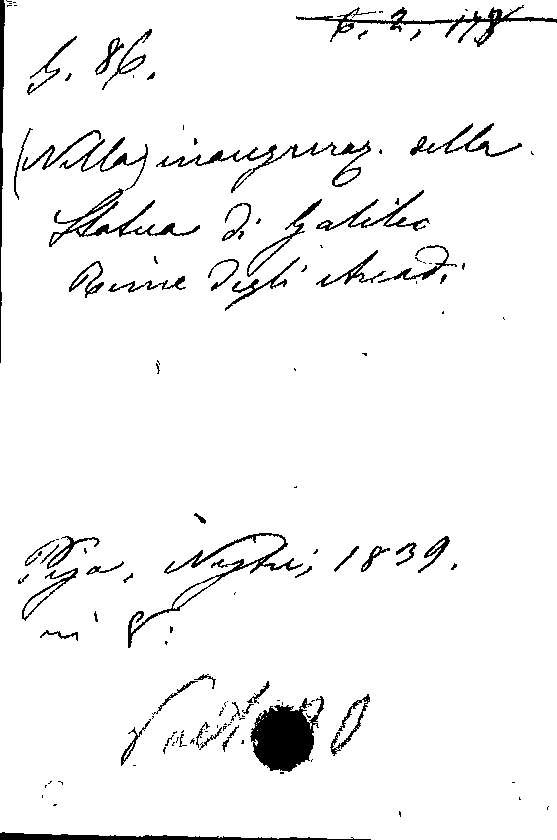 6, 2, 178
G. 86.
(Nella) inauguraz. della
Statua di Galileo
Rime degli Arcadi
Pisa, Nistri, 1839.
in 8°: